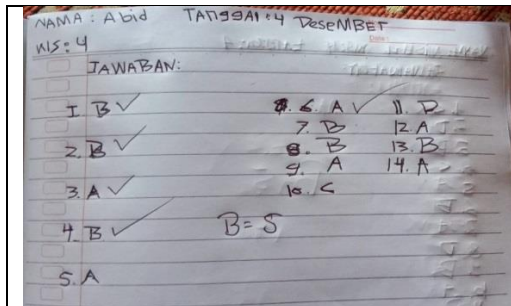 NAMA : Abid TANGGAl : 4 DeseMBET
Date:
NIS : 4
JAWABAN:
I. B ✓
2. B ✓
3. A ✓
4. B ✓
5. A
6. A ✓
7. B
8. B
9. A
10. C
B = 5
11. D
12. A
13. B
14. A